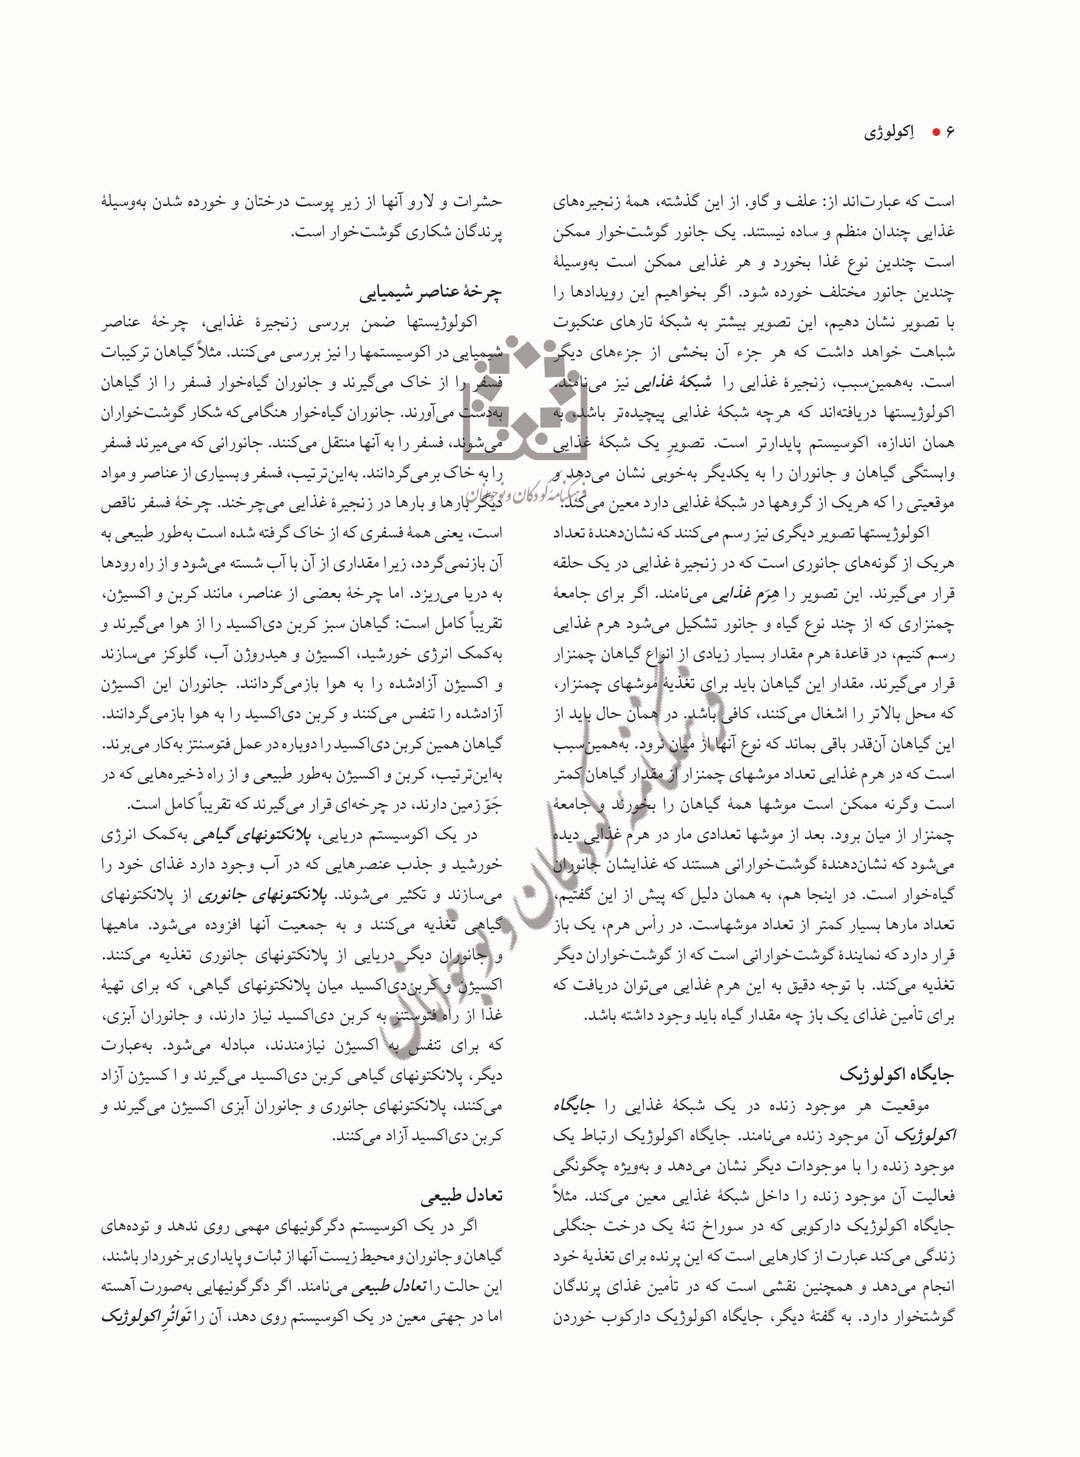 ۶ • اِکولوژی
است که عبارت‌اند از: علف و گاو. از این گذشته، همهٔ زنجیره‌های
غذایی چندان منظم و ساده نیستند. یک جانور گوشت‌خوار ممکن
است چندین نوع غذا بخورد و هر غذایی ممکن است به‌وسیلهٔ
چندین جانور مختلف خورده شود. اگر بخواهیم این رویدادها را
با تصویر نشان دهیم، این تصویر بیشتر به شبکهٔ تارهای عنکبوت
شباهت خواهد داشت که هر جزء آن بخشی از جزءهای دیگر
است. به‌همین‌سبب، زنجیرهٔ غذایی را شبکهٔ غذایی نیز می‌نامند.
اکولوژیستها دریافته‌اند که هرچه شبکهٔ غذایی پیچیده‌تر باشد، به
همان اندازه، اکوسیستم پایدارتر است. تصویرِ یک شبکهٔ غذایی
وابستگی گیاهان و جانوران را به یکدیگر به‌خوبی نشان می‌دهد و
موقعیتی را که هریک از گروهها در شبکهٔ غذایی دارد معین می‌کند.
اکولوژیستها تصویر دیگری نیز رسم می‌کنند که نشان‌دهندهٔ تعداد
هریک از گونه‌های جانوری است که در زنجیرهٔ غذایی در یک حلقه
قرار می‌گیرند. این تصویر را هِرَم غذایی می‌نامند. اگر برای جامعهٔ
چمنزاری که از چند نوع گیاه و جانور تشکیل می‌شود هرم غذایی
رسم کنیم، در قاعدهٔ هرم مقدار بسیار زیادی از انواع گیاهان چمنزار
قرار می‌گیرند. مقدار این گیاهان باید برای تغذیهٔ موشهای چمنزار،
که محل بالاتر را اشغال می‌کنند، کافی باشد. در همان حال باید از
این گیاهان آن‌قدر باقی بماند که نوع آنها از میان نرود. به‌همین‌سبب
است که در هرم غذایی تعداد موشهای چمنزار از مقدار گیاهان کمتر
است وگرنه ممکن است موشها همهٔ گیاهان را بخورند و جامعهٔ
چمنزار از میان برود. بعد از موشها تعدادی مار در هرم غذایی دیده
می‌شود که نشان‌دهندهٔ گوشت‌خوارانی هستند که غذایشان جانوران
گیاه‌خوار است. در اینجا هم، به همان دلیل که پیش از این گفتیم،
تعداد مارها بسیار کمتر از تعداد موشهاست. در رأس هرم، یک باز
قرار دارد که نمایندهٔ گوشت‌خوارانی است که از گوشت‌خواران دیگر
تغذیه می‌کند. با توجه دقیق به این هرم غذایی می‌توان دریافت که
برای تأمین غذای یک باز چه مقدار گیاه باید وجود داشته باشد.
جایگاه اکولوژیک
موقعیت هر موجود زنده در یک شبکهٔ غذایی را جایگاه
اکولوژیک آن موجود زنده می‌نامند. جایگاه اکولوژیک ارتباط یک
موجود زنده را با موجودات دیگر نشان می‌دهد و به‌ویژه چگونگی
فعالیت آن موجود زنده را داخل شبکهٔ غذایی معین می‌کند. مثلاً
جایگاه اکولوژیک دارکوبی که در سوراخ تنهٔ یک درخت جنگلی
زندگی می‌کند عبارت از کارهایی است که این پرنده برای تغذیهٔ خود
انجام می‌دهد و همچنین نقشی است که در تأمین غذای پرندگان
گوشتخوار دارد. به گفتهٔ دیگر، جایگاه اکولوژیک دارکوب خوردن
حشرات و لارو آنها از زیر پوست درختان و خورده شدن به‌وسیلهٔ
پرندگان شکاری گوشت‌خوار است.
چرخهٔ عناصر شیمیایی
اکولوژیستها ضمن بررسی زنجیرهٔ غذایی، چرخهٔ عناصر
شیمیایی در اکوسیستمها را نیز بررسی می‌کنند. مثلاً گیاهان ترکیبات
فسفر را از خاک می‌گیرند و جانوران گیاه‌خوار فسفر را از گیاهان
به‌دست می‌آورند. جانوران گیاه‌خوار هنگامی‌که شکار گوشت‌خواران
می‌شوند، فسفر را به آنها منتقل می‌کنند. جانورانی که می‌میرند فسفر
را به خاک برمی‌گردانند. به‌این‌ترتیب، فسفر و بسیاری از عناصر و مواد
دیگر بارها و بارها در زنجیرهٔ غذایی می‌چرخند. چرخهٔ فسفر ناقص
است، یعنی همهٔ فسفری که از خاک گرفته شده است به‌طور طبیعی به
آن بازنمی‌گردد، زیرا مقداری از آن با آب شسته می‌شود و از راه رودها
به دریا می‌ریزد. اما چرخهٔ بعضی از عناصر، مانند کربن و اکسیژن،
تقریباً کامل است: گیاهان سبز کربن دی‌اکسید را از هوا می‌گیرند و
به‌کمک انرژی خورشید، اکسیژن و هیدروژن آب، گلوکز می‌سازند
و اکسیژن آزادشده را به هوا بازمی‌گردانند. جانوران این اکسیژن
آزادشده را تنفس می‌کنند و کربن دی‌اکسید را به هوا بازمی‌گردانند.
گیاهان همین کربن دی‌اکسید را دوباره در عمل فتوسنتز به‌کار می‌برند.
به‌این‌ترتیب، کربن و اکسیژن به‌طور طبیعی و از راه ذخیره‌هایی که در
جَوّ زمین دارند، در چرخه‌ای قرار می‌گیرند که تقریباً کامل است.
در یک اکوسیستم دریایی، پلانکتونهای گیاهی به‌کمک انرژی
خورشید و جذب عنصرهایی که در آب وجود دارد غذای خود را
می‌سازند و تکثیر می‌شوند. پلانکتونهای جانوری از پلانکتونهای
گیاهی تغذیه می‌کنند و به جمعیت آنها افزوده می‌شود. ماهیها
و جانوران دیگر دریایی از پلانکتونهای جانوری تغذیه می‌کنند.
اکسیژن و کربن‌دی‌اکسید میان پلانکتونهای گیاهی، که برای تهیهٔ
غذا از راه فتوسنتز به کربن دی‌اکسید نیاز دارند، و جانوران آبزی،
که برای تنفس به اکسیژن نیازمندند، مبادله می‌شود. به‌عبارت
دیگر، پلانکتونهای گیاهی کربن دی‌اکسید می‌گیرند و اکسیژن آزاد
می‌کنند، پلانکتونهای جانوری و جانوران آبزی اکسیژن می‌گیرند و
کربن دی‌اکسید آزاد می‌کنند.
تعادل طبیعی
اگر در یک اکوسیستم دگرگونیهای مهمی روی ندهد و توده‌های
گیاهان و جانوران و محیط زیست آنها از ثبات و پایداری برخوردار باشند،
این حالت را تعادل طبیعی می‌نامند. اگر دگرگونیهایی به‌صورت آهسته
اما در جهتی معین در یک اکوسیستم روی دهد، آن را تَواتُرِ اکولوژیک
فرهنگنامه کودکان و نوجوانان
فرهنگنامه کودکان و نوجوانان